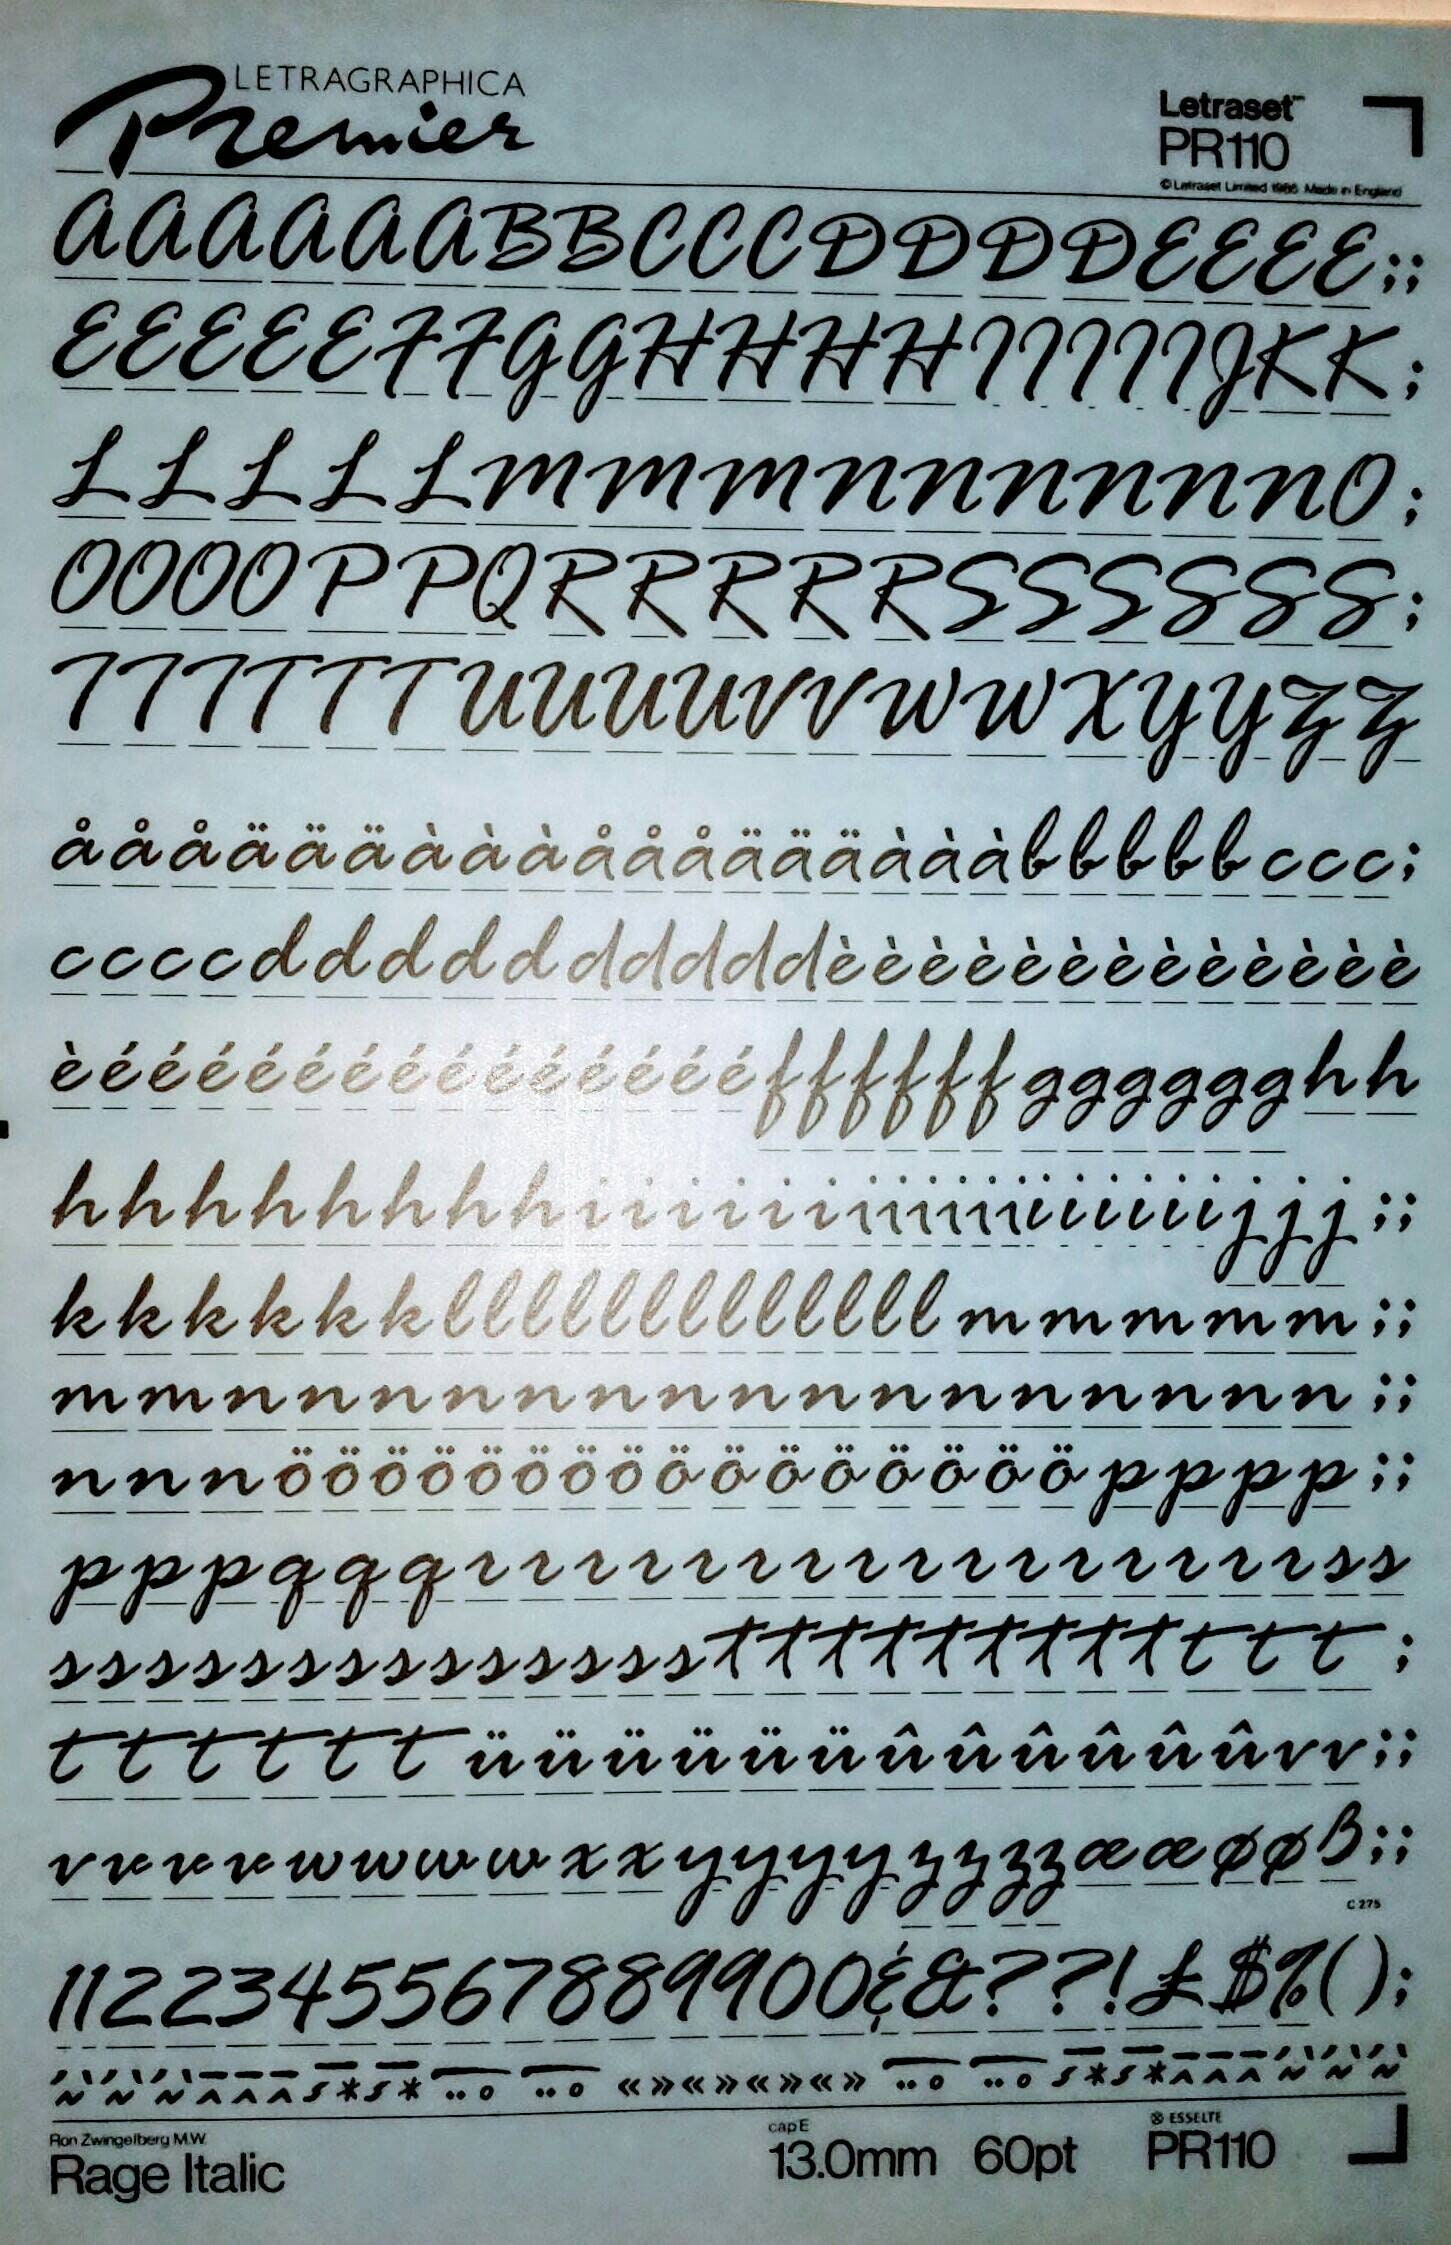 LETRAGRAPHICA
Premier
Letraset™
PR110
© Letraset Limited 1986 Made in England
AAAAAABBCCCDDDDEEEE;;
EEEEEFFGGHHHHIIIIIJKK;
LLLLLMMMNNNNNNO;
OOOOPPQRRRRRSSSSSS;
TTTTTTUUUUVVWWXYYZZ
åååäääàààåååäääàààbbbbbccc;
ccccddddddddddèèèèèèèèèèèèè
èééééééééééééééffffffgggggghh
hhhhhhhhiiiiiiiiiiiiiiiijjj;;
kkkkkklllllllllllllmmmmm;;
mmnnnnnnnnnnnnnnnn;;
nnnööööööööööööööööpppp;;
pppqqqrrrrrrrrrrrrrrrrss
sssssssssssssstttttttttttt;
ttttttüüüüüüûûûûûûvv;;
vvvvwwwwxxyyyyzzzzææøøß;;
C 275
1122345567889900&&??!£$%();
«»«»«»«»
Ron Zwingelberg M.W.
Rage Italic
cap E
13.0mm 60pt
ESSELTE
PR110